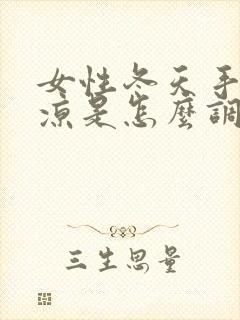 女性冬天手
凉是怎麼調
三生思量